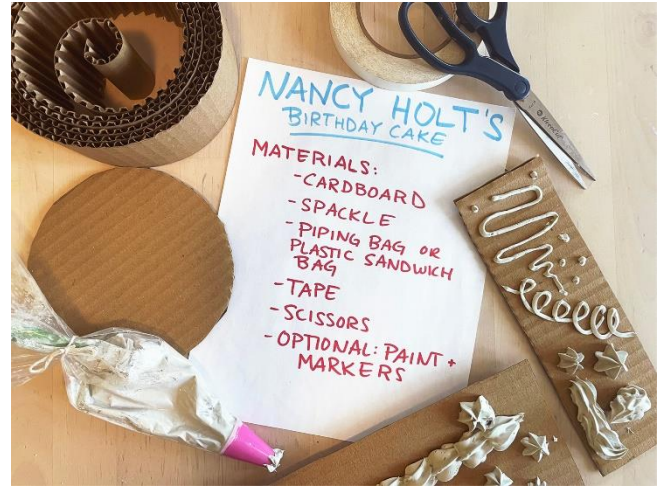 NANCY HOLT'S
BIRTHDAY CAKE
MATERIALS:
-CARDBOARD
-SPACKLE
-PIPING BAG OR
PLASTIC SANDWICH
BAG
-TAPE
-SCISSORS
-OPTIONAL: PAINT +
MARKERS